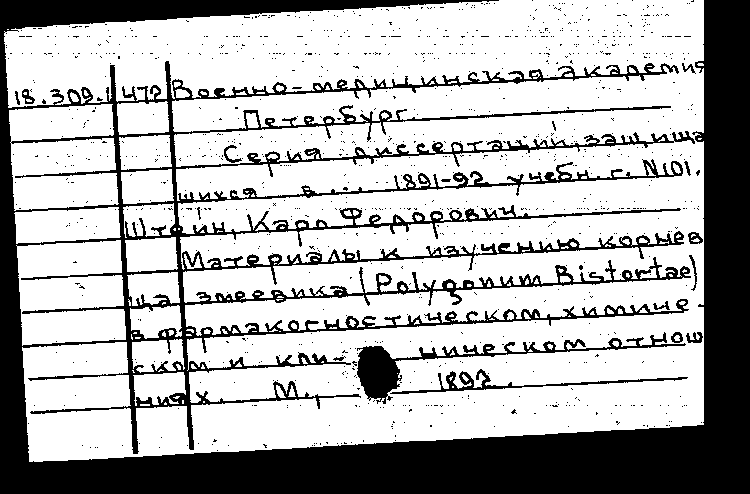 18.309.1 472 Военно-медицинская академия
Петербург.
Серия диссертаций, защища
шихся в ... 1891-92 учебн. г. N101.
Штейн, Карл Федорович.
Материалы к изучению корнев
ща змеевика (Polygonum Bistortae)
в фармакогностическом, химиче-
ском и кли- ническом отнош
ниях. М., 1892.